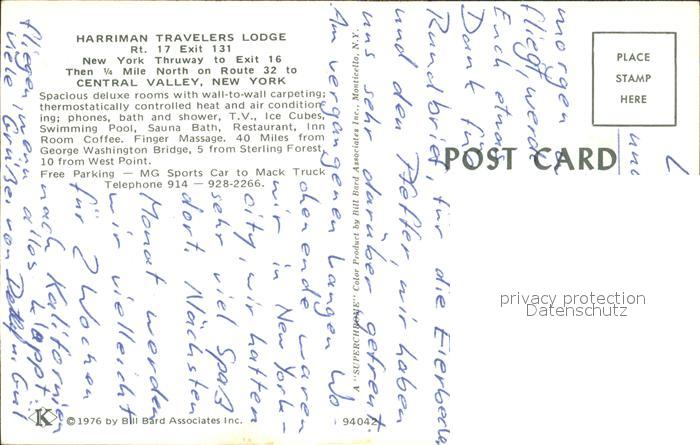 HARRIMAN TRAVELERS LODGE
Rt. 17 Exit 131
New York Thruway to Exit 16
Then ¼ Mile North on Route 32 to
CENTRAL VALLEY, NEW YORK
Spacious deluxe rooms with wall-to-wall carpeting;
thermostatically controlled heat and air condition-
ing; phones, bath and shower, T.V., Ice Cubes,
Swimming Pool, Sauna Bath, Restaurant, Inn
Room Coffee. Finger Massage. 40 Miles from
George Washington Bridge, 5 from Sterling Forest
10 from West Point.
Free Parking — MG Sports Car to Mack Truck
Telephone 914 — 928-2266.
K
© 1976 by Bill Bard Associates Inc.
94042
A "SUPERCHROME" Color Product by Bill Bard Associates Inc., Monticello, N.Y.
POST CARD
PLACE
STAMP
HERE
privacy protection
Datenschutz
und
morgen
fliegt, werde
Euch etwas
Dank für
Rundbrief, für die Eierbecher
und den Pfeffer, wir haben
uns sehr darüber gefreut.
Am vergangenen langen Wo-
chenende waren
wir in New York-
city, wir hatten
sehr viel Spaß
dort. Nächsten
Monat werden
wir vielleicht
für 2 Wochen
nach Kalifornien
fliegen, wenn alles klappt.
Viele Grüße von